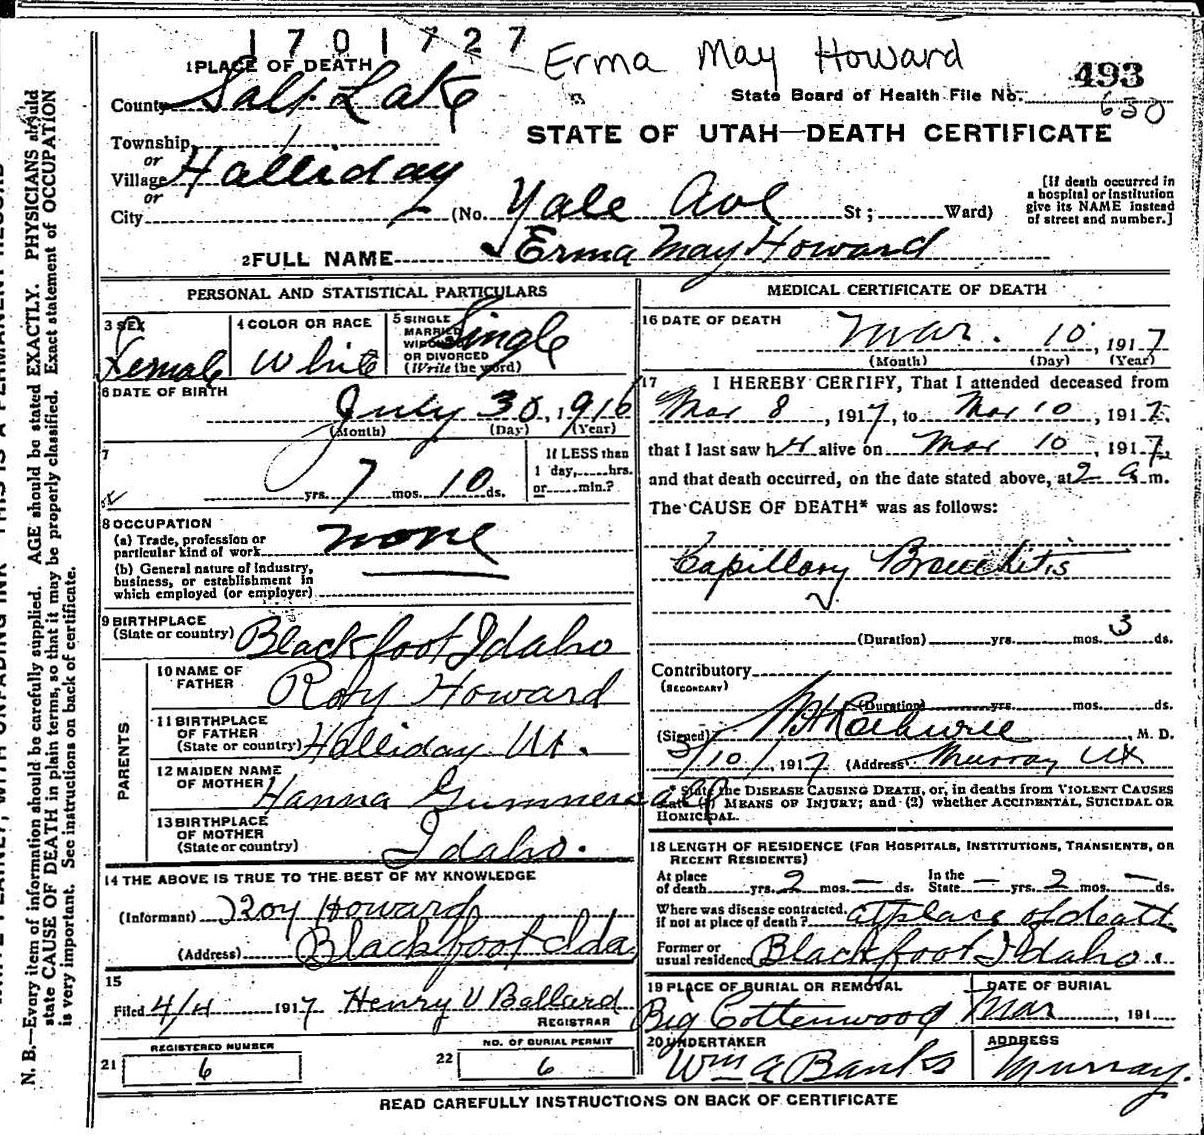 1701727
Erma May Howard
493
650
1 PLACE OF DEATH
County Salt Lake
State Board of Health File No.
STATE OF UTAH—DEATH CERTIFICATE
Township
or
Village Halliday
or
City (No. Yale Ave St; Ward)
[If death occurred in a hospital or institution give its NAME instead of street and number.]
2 FULL NAME Erma May Howard
PERSONAL AND STATISTICAL PARTICULARS
3 SEX
Female
4 COLOR OR RACE
White
5 SINGLE MARRIED WIDOWED OR DIVORCED (Write the word)
Single
6 DATE OF BIRTH
July 30, 1916
(Month) (Day) (Year)
7
yrs. 7 mos. 10 ds.
If LESS than 1 day, hrs. or min.?
8 OCCUPATION
(a) Trade, profession or particular kind of work none
(b) General nature of industry, business, or establishment in which employed (or employer)
9 BIRTHPLACE
(State or country) Blackfoot Idaho
PARENTS
10 NAME OF FATHER Roy Howard
11 BIRTHPLACE OF FATHER (State or country) Halliday Ut.
12 MAIDEN NAME OF MOTHER Hanna Gummersall
13 BIRTHPLACE OF MOTHER (State or country) Idaho.
14 THE ABOVE IS TRUE TO THE BEST OF MY KNOWLEDGE
(Informant) Roy Howard
(Address) Blackfoot Ida
15
Filed 4/4 1917 Henry V Ballard
REGISTRAR
21 REGISTERED NUMBER
6
22 NO. OF BURIAL PERMIT
6
MEDICAL CERTIFICATE OF DEATH
16 DATE OF DEATH
Mar. 10, 1917
(Month) (Day) (Year)
17 I HEREBY CERTIFY, That I attended deceased from
Mar 8, 1917, to Mar 10, 1917
that I last saw her alive on Mar 10, 1917
and that death occurred, on the date stated above, at 2 a m.
The CAUSE OF DEATH* was as follows:
Capillary Bronchitis
(Duration) yrs. mos. 3 ds.
Contributory
(SECONDARY)
(Duration) yrs. mos. ds.
(Signed) , M. D.
3/10/, 1917 (Address) Murray Ut
* State the DISEASE CAUSING DEATH, or, in deaths from VIOLENT CAUSES
state (1) MEANS OF INJURY; and (2) whether ACCIDENTAL, SUICIDAL OR
HOMICIDAL.
18 LENGTH OF RESIDENCE (FOR HOSPITALS, INSTITUTIONS, TRANSIENTS, OR
RECENT RESIDENTS)
At place of death yrs. 2 mos. — ds. In the State — yrs. 2 mos. — ds.
Where was disease contracted, if not at place of death? at place of death
Former or usual residence Blackfoot Idaho.
19 PLACE OF BURIAL OR REMOVAL
Big Cottonwood
DATE OF BURIAL
Mar , 191
20 UNDERTAKER
Wm A Banks
ADDRESS
Murray.
READ CAREFULLY INSTRUCTIONS ON BACK OF CERTIFICATE
N. B.—Every item of information should be carefully supplied. AGE should be stated EXACTLY. PHYSICIANS should
state CAUSE OF DEATH in plain terms, so that it may be properly classified. Exact statement of OCCUPATION
is very important. See instructions on back of certificate.